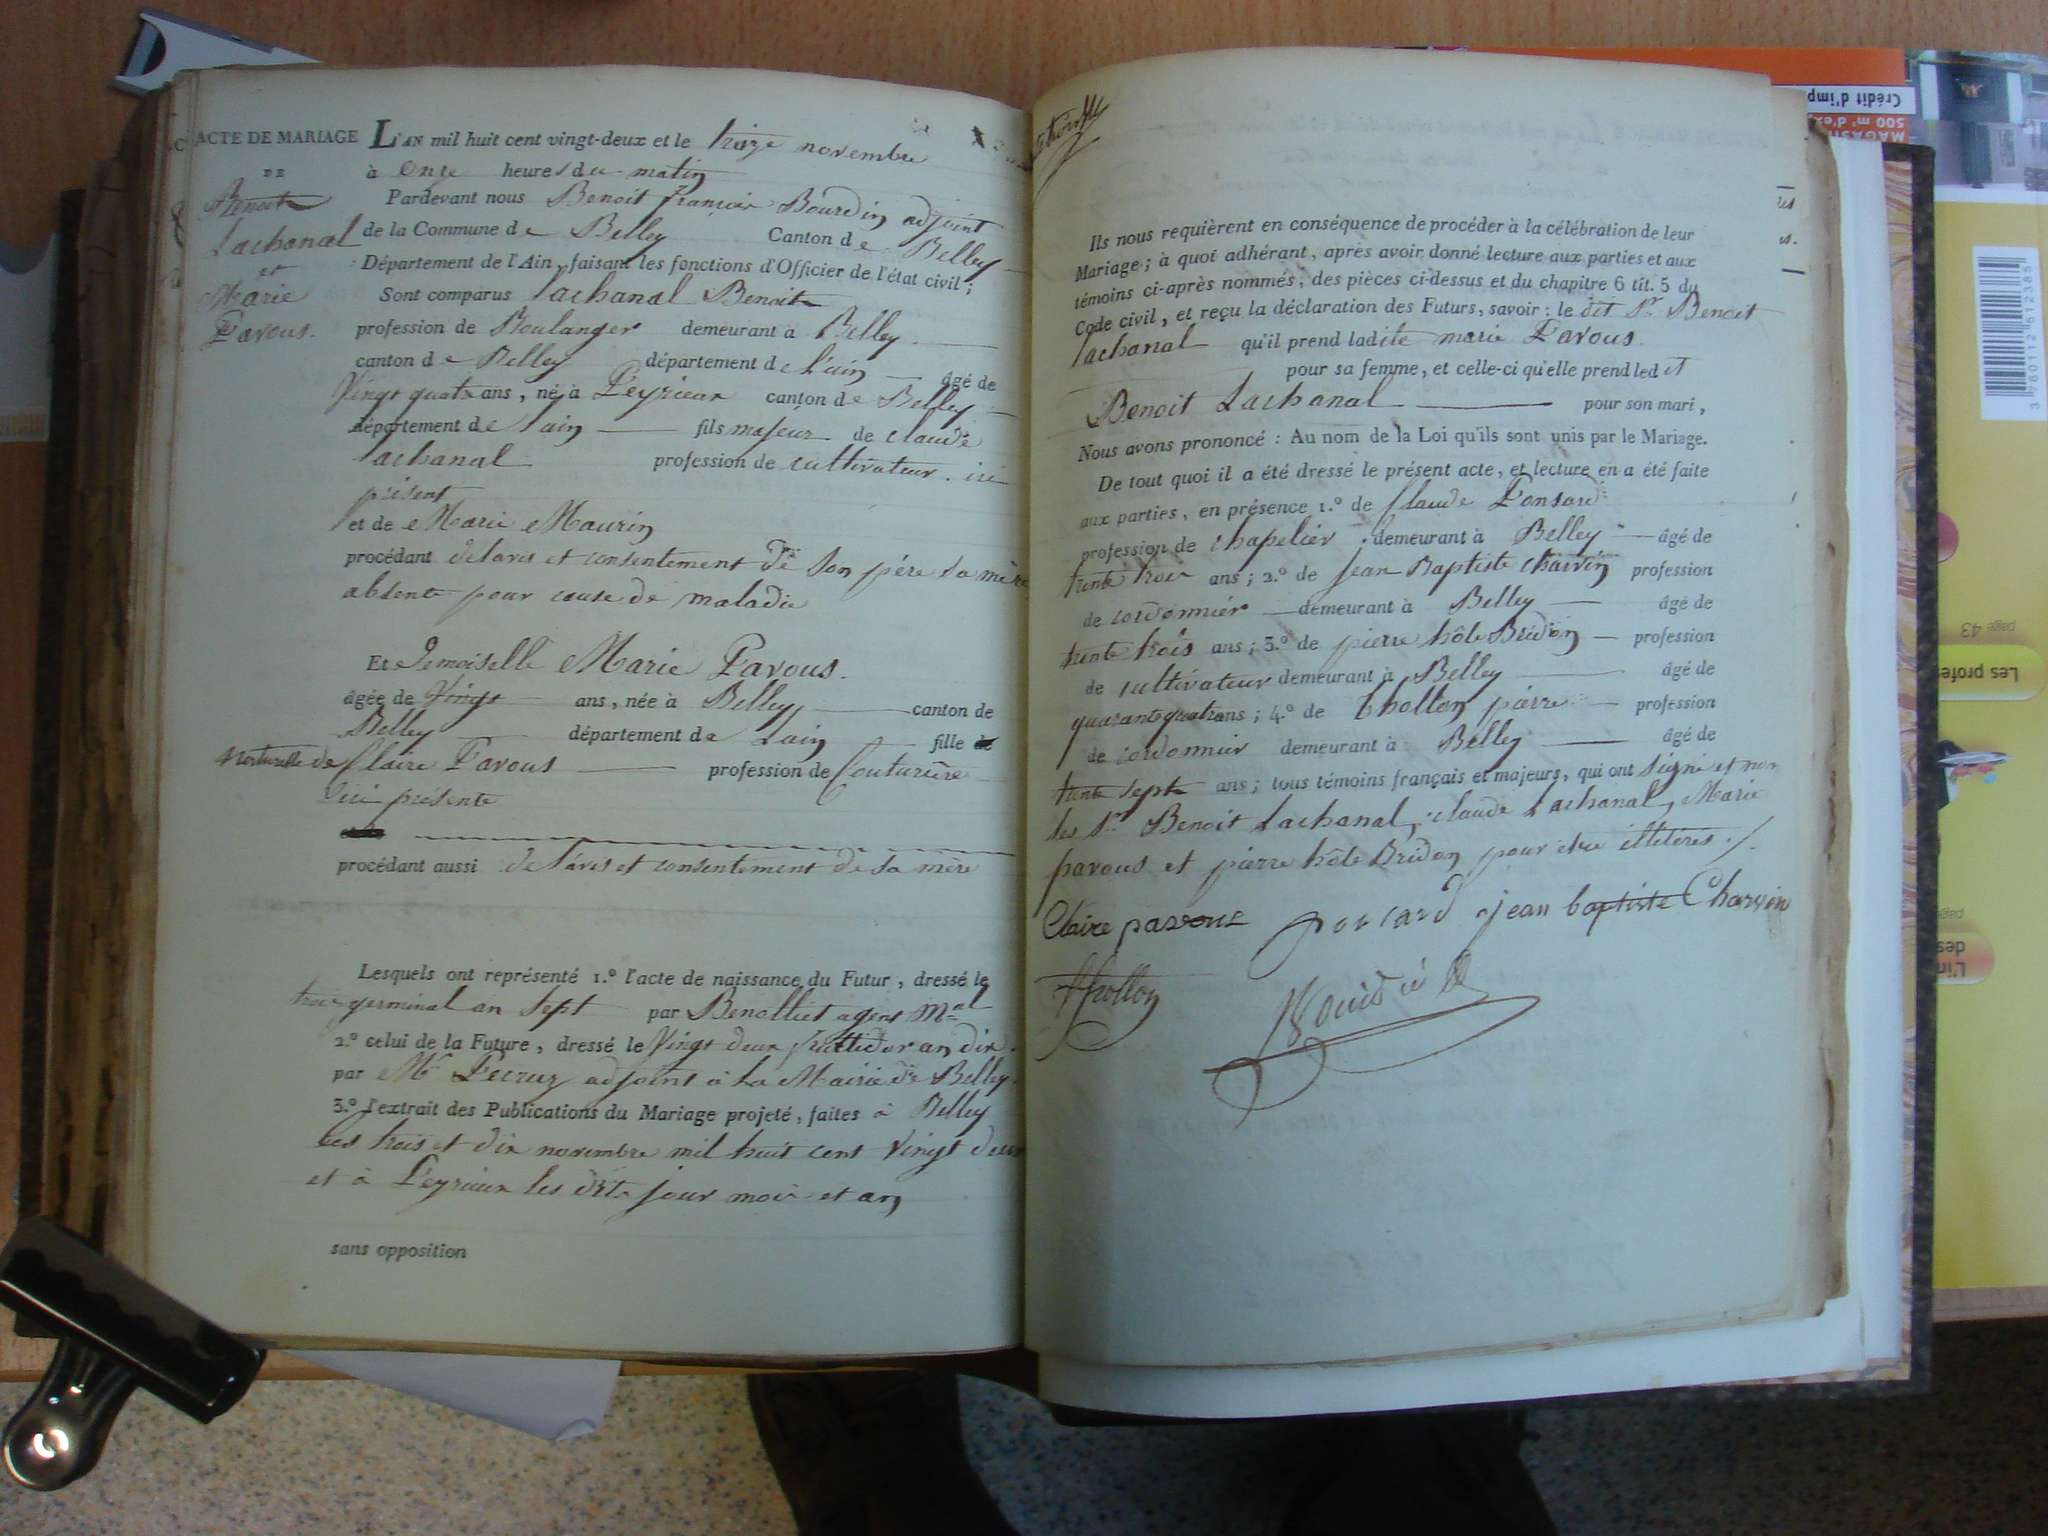 ACTE DE MARIAGE
DE
Benoit
Lachanal
et
Marie
Pavous.
L'AN mil huit cent vingt-deux et le treize novembre
à onze heures du matin
Pardevant nous Benoit françois Bourdin adjoint
de la Commune de Belley Canton de Belley
Département de l'Ain, faisant les fonctions d'Officier de l'état civil ;
Sont comparus Lachanal Benoit
profession de Boulanger demeurant à Belley
canton de Belley département de l'ain âgé de
Vingt quatre ans, né à Peyrieux canton de Belley
département de l'ain fils majeur de claude
Lachanal profession de cultivateur ici
présent
et de Marie Maurin
procédant de l'avis et consentement de son père sa mère
absente pour cause de maladie
Et demoiselle Marie Pavous.
âgée de Vingt ans, née à Belley canton de
Belley département de Lain fille de
Naturelle de Claire Pavous profession de Couturière
ici présente
procédant aussi de l'avis et consentement de sa mère
Lesquels ont représenté 1.º l'acte de naissance du Futur, dressé le
trois germinal an sept par Benolliet agent Mal
2.º celui de la Future, dressé le Vingt deux fructidor an dix
par Mr Pecruz adjoint à la Mairie de Belley
3.º l'extrait des Publications du Mariage projeté, faites à Belley
les trois et dix novembre mil huit cent vingt deux
et à Peyrieux les dits jour mois et an
sans opposition
Ils nous requièrent en conséquence de procéder à la célébration de leur
Mariage ; à quoi adhérant, après avoir donné lecture aux parties et aux
témoins ci-après nommés, des pièces ci-dessus et du chapitre 6 tit. 5 du
Code civil, et reçu la déclaration des Futurs, savoir : le dit Sr Benoit
Lachanal qu'il prend ladite marie Pavous
pour sa femme, et celle-ci qu'elle prend led it
Benoit Lachanal pour son mari,
Nous avons prononcé : Au nom de la Loi qu'ils sont unis par le Mariage.
De tout quoi il a été dressé le présent acte, et lecture en a été faite
aux parties, en présence 1.º de Claude Ponsard
profession de chapelier demeurant à Belley âgé de
trente trois ans ; 2.º de jean Baptiste Charvin profession
de cordonnier demeurant à Belley âgé de
trente trois ans ; 3.º de pierre hôte Bridon profession
de cultivateur demeurant à Belley âgé de
quarante quatre ans ; 4.º de Thollon pierre profession
de cordonnier demeurant à Belley âgé de
trente sept ans ; tous témoins français et majeurs, qui ont signé et non
les Srs Benoit Lachanal, claude Lachanal, Marie
pavous et pierre hôte Bridon pour être illitérés ./.
Claire pavous ponsard jean baptiste Charvin
Thollon
Crédit d'imp
MAGASIN
500 m² d'ex
3 760112 612385
page 43
Les profes
page
L'in
des